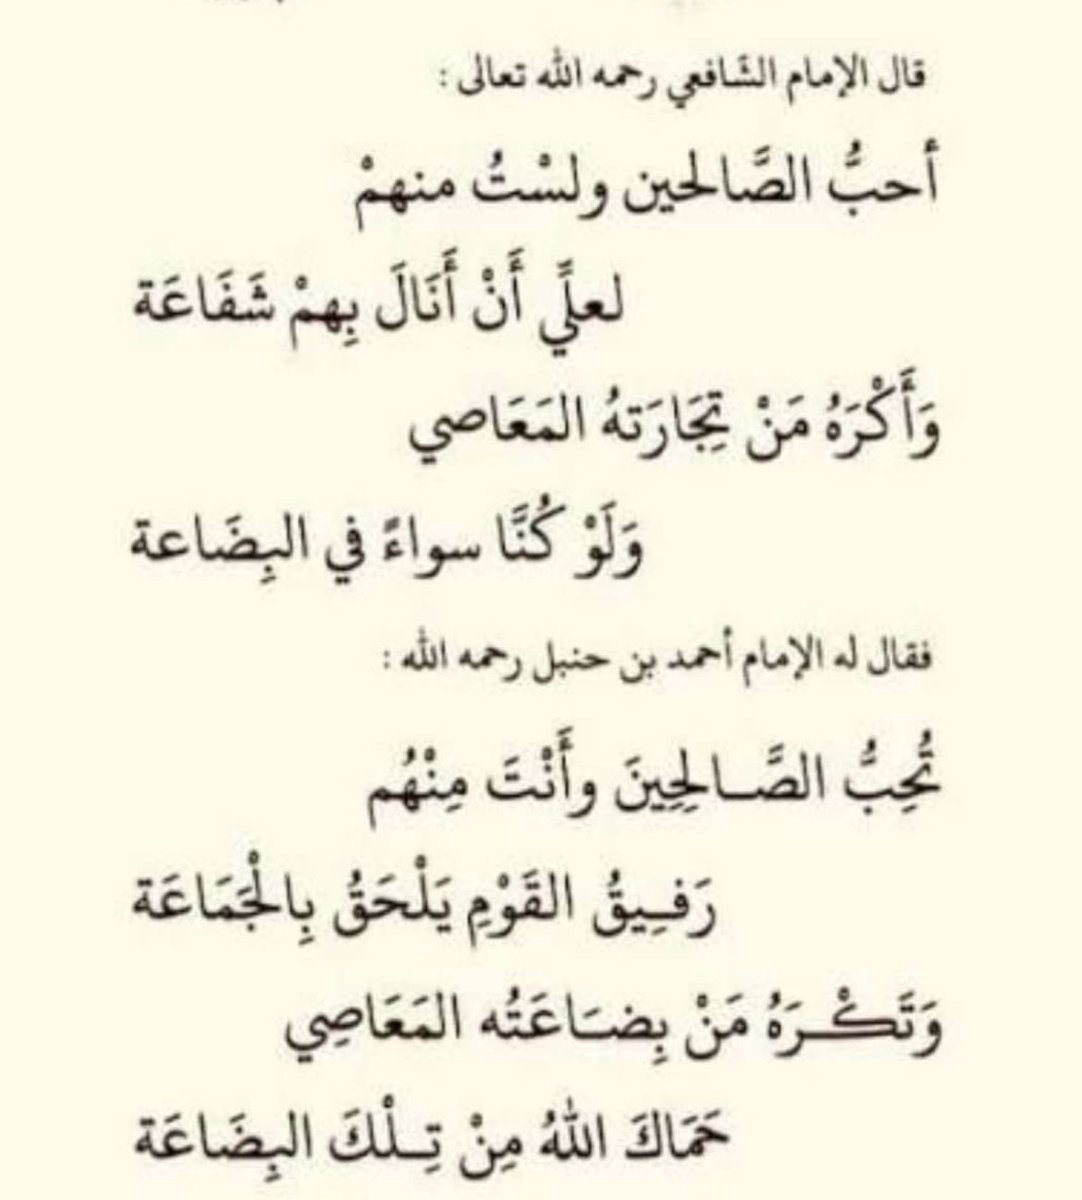 قال الإمام الشَافعي رحمه الله تعالى :
أحبُّ الصَّالحين ولسْتُ منهمْ
لعلَّي أَنْ أَنَالَ بِهمْ شَفَاعَة
وَأَكْرَهُ مَنْ تِجَارَتهُ المَعَاصي
وَلَوْ كُنَّا سواءً في البِضَاعة
فقال له الإمام أحمد بن حنبل رحمه الله :
تُحِبُّ الصَّـالِحِينَ وأَنْتَ مِنْهُم
رَفـِيقُ القَوْمِ يَلْحَقُ بِالْجَمَاعَة
وَتَكْـرَهُ مَنْ بِضـَاعَتُه المَعَاصِي
حَمَاكَ اللهُ مِنْ تِـلْكَ البِضَاعَة